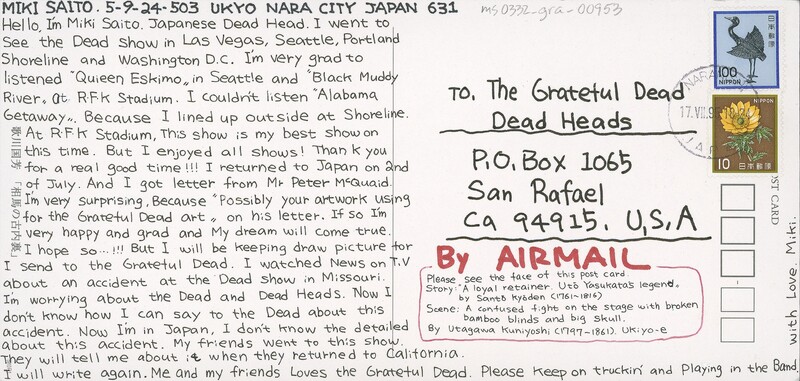 MIKI SAITO. 5-9-24-503 UKYO NARA CITY JAPAN 631
Hello, I'm Miki Saito. Japanese Dead Head. I went to
See the Dead show in Las Vegas, Seattle, Portland
Shoreline and Washington D.C. I'm very grad to
listened "Quieen Eskimo„ in Seattle and "Black Muddy
River„ at RFK Stadium. I couldn't listen "Alabama
Getaway„. Because I lined up outside at Shoreline.
At RFK Stadium, This show is my best show on
this time. But I enjoyed all shows! Thank you
for a real good time!!! I returned to Japan on 2nd
of July. And I got letter from Mr Peter McQuaid.
I'm very surprising, Because "Possibly your artwork using
for the Grateful Dead art„ on his letter. If so I'm
very happy and grad and My dream will come true.
I hope so...!!! But I will be keeping draw picture for
I send to the Grateful Dead. I watched News on T.V
about an accident at the Dead show in Missouri.
I'm worrying about the Dead and Dead Heads. Now I
don't know how I can say to the Dead about this
accident. Now I'm in Japan, I don't know the detailed
about this accident. My friends went to this show.
They will tell me about it when they returned to California.
I will write again. Me and my friends Loves the Grateful Dead. Please keep on truckin' and Playing in the Band.
with Love, Miki.
歌川国芳 「相馬の古内裏」
ms0332-gra-00953
100
NIPPON
日本郵便
NIPPON
10
日本郵便
NARA
17.VII.95
JAPAN
POST CARD
TO. The Grateful Dead
Dead Heads
P.O. Box 1065
San Rafael
Ca 94915. U,S,A
By AIRMAIL
Please see the face of this post card.
Story: A loyal retainer. Utō Yasukata's legend.
by Santō kyōden (1761~1816)
Scene: A confused fight on the stage with broken
bamboo blinds and big skull.
By Utagawa Kuniyoshi (1797~1861). Ukiyo-e